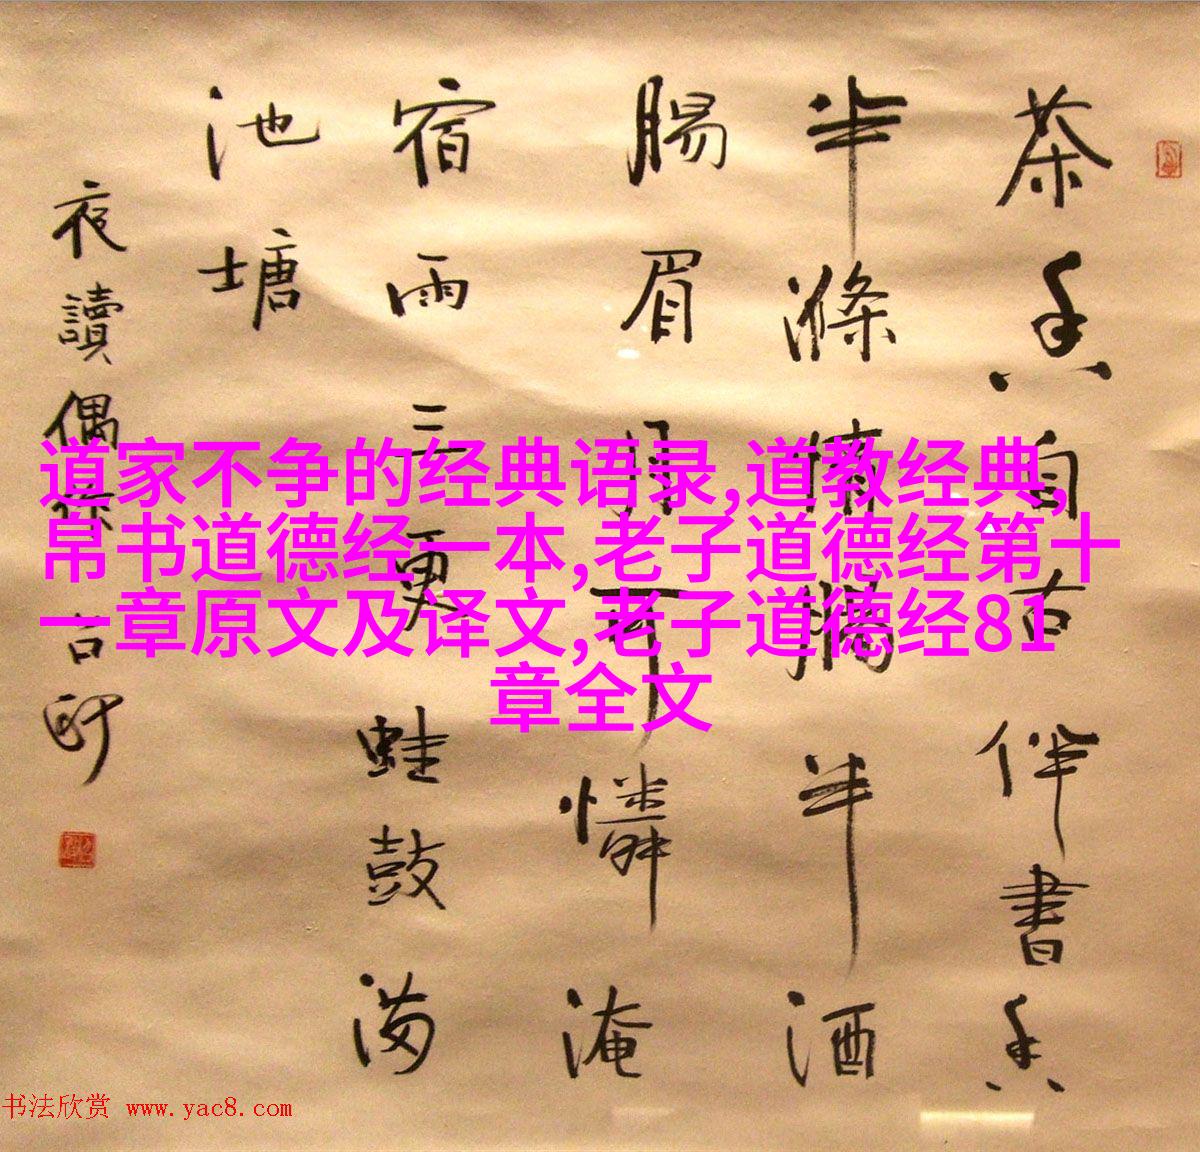 茶香自古伴書香
半滌半酒
腸眉月可憐淹
宿雨三更蛙鼓满
池塘
夜讀偶吉
道家不争的经典语录,道教经典,
帛书道德经一本,老子道德经第十
一章原文及译文,老子道德经81
章全文
书法欣赏 www.yac8.com